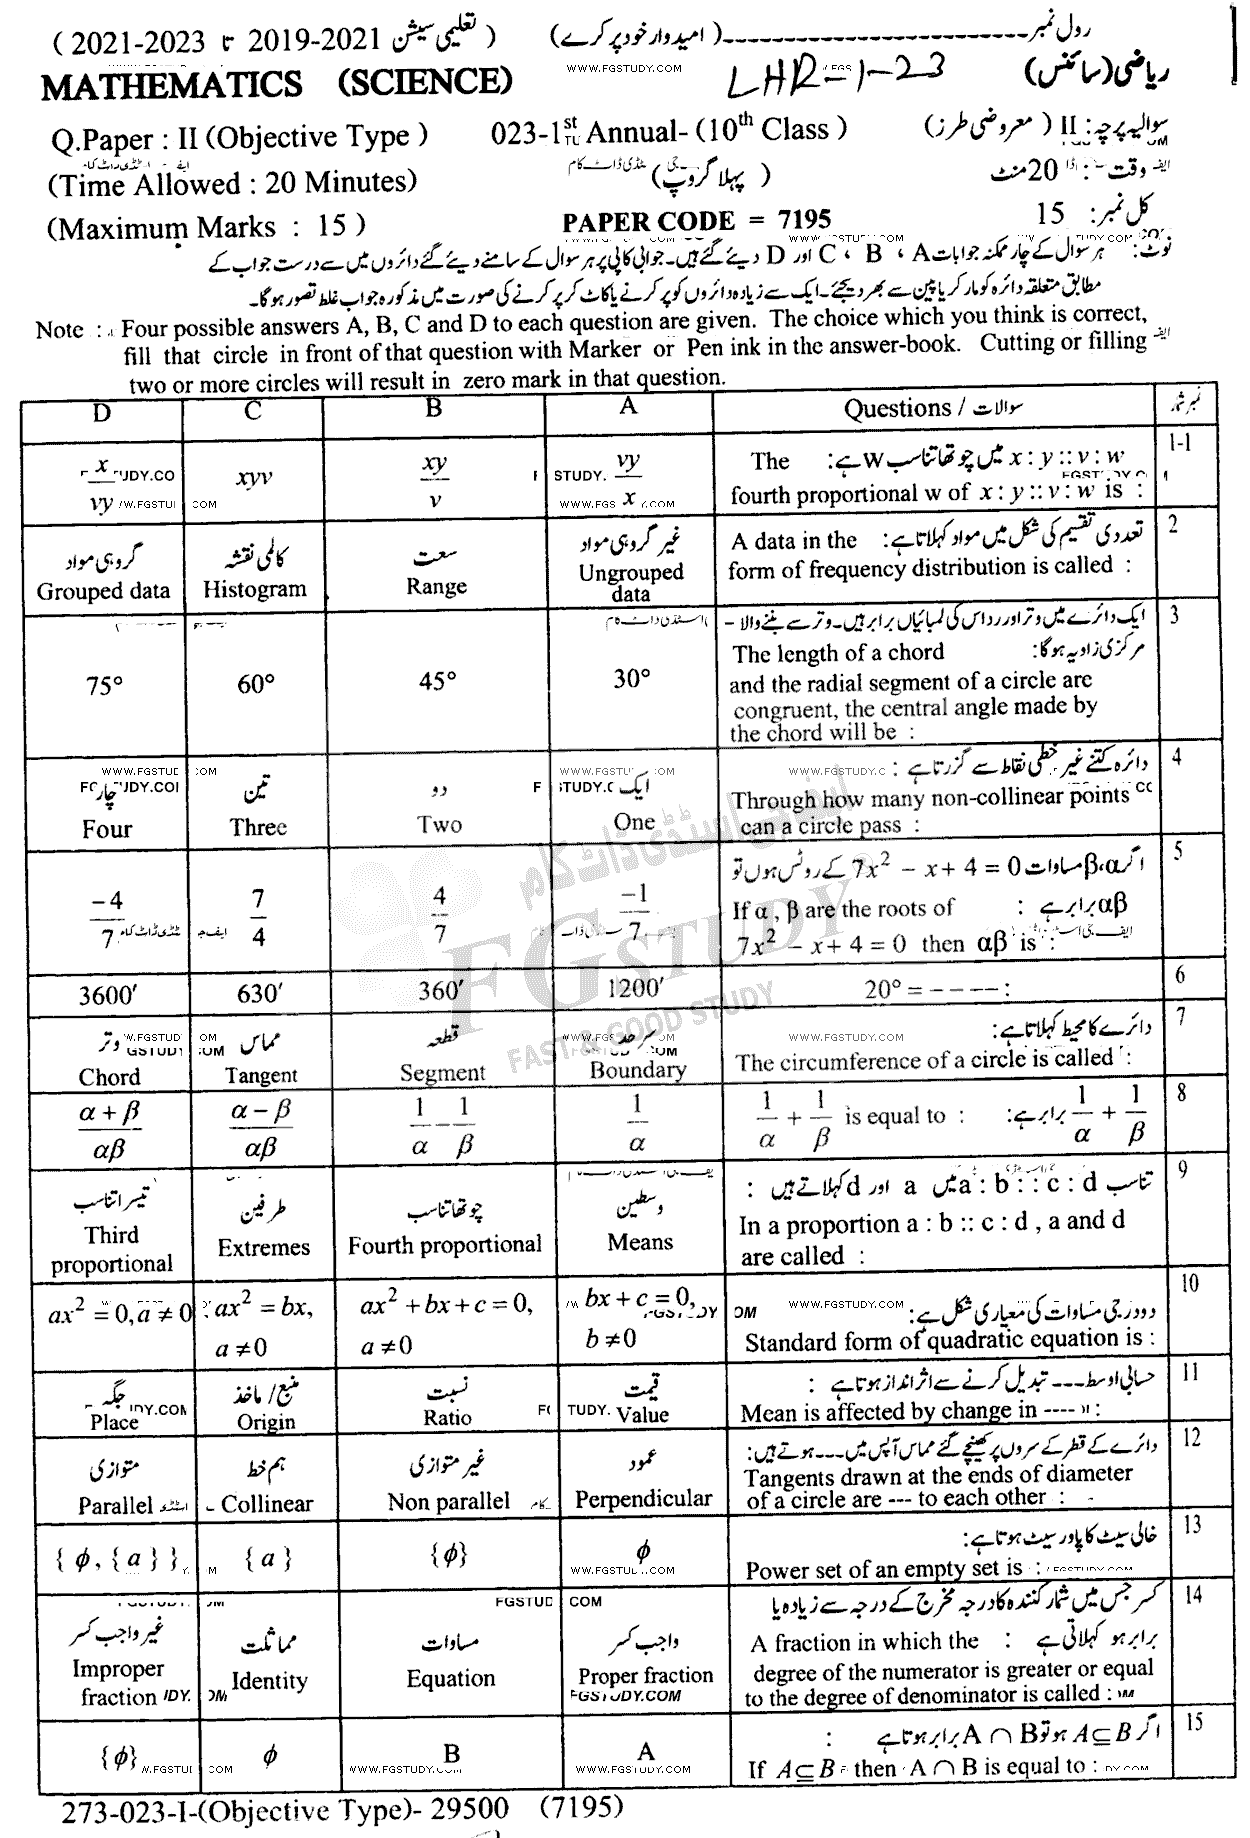 رول نمبر ( امیدوار خود پر کرے ) ( تعلیمی سیشن 2019-2021 تا 2021-2023 )
ریاضی (سائنس) LHR-1-23 WWW.FGSTUDY.COM MATHEMATICS (SCIENCE)
Q.Paper : II (Objective Type ) 023-1st Annual- (10th Class ) سوالیہ پرچہ : II ( معروضی طرز )
(Time Allowed : 20 Minutes) ( پہلا گروپ ) وقت : 20 منٹ
(Maximum Marks : 15 ) PAPER CODE = 7195 کل نمبر : 15
نوٹ : ہر سوال کے چار ممکنہ جوابات A ، B ، C اور D دیئے گئے ہیں۔ جوابی کاپی پر ہر سوال کے سامنے دیئے گئے دائروں میں سے درست جواب کے
مطابق متعلقہ دائرہ کو مارکر یا پین سے بھر دیجئے۔ ایک سے زیادہ دائروں کو پر کرنے یا کاٹ کر پر کرنے کی صورت میں مذکورہ جواب غلط تصور ہوگا۔
Note : Four possible answers A, B, C and D to each question are given. The choice which you think is correct,
fill that circle in front of that question with Marker or Pen ink in the answer-book. Cutting or filling
two or more circles will result in zero mark in that question.
D C B A Questions / سوالات نمبر شمار
1-1 x : y :: v : w میں چوتھا تناسب w ہے : The
fourth proportional w of x : y :: v : w is :
vy/x xy/v xyv x/vy
2 تعددی تقسیم کی شکل میں مواد کہلاتا ہے : A data in the
form of frequency distribution is called :
غیر گروہی مواد سعت کالمی نقشہ گروہی مواد
Ungrouped data Range Histogram Grouped data
3 ایک دائرے میں وتر اور رداس کی لمبائیاں برابر ہیں۔ وتر سے بننے والا
مرکزی زاویہ ہوگا : The length of a chord
and the radial segment of a circle are
congruent, the central angle made by
the chord will be :
30° 45° 60° 75°
4 دائرہ کتنے غیر خطی نقاط سے گزرتا ہے :
Through how many non-collinear points
can a circle pass :
ایک دو تین چار
One Two Three Four
5 اگر α،β مساوات 7x² − x + 4 = 0 کے روٹس ہوں تو
αβ برابر ہے : If α , β are the roots of
7x² − x + 4 = 0 then αβ is :
−1/7 4/7 7/4 −4/7
6 20° = − − − − :
1200′ 360′ 630′ 3600′
7 دائرے کا محیط کہلاتا ہے :
The circumference of a circle is called :
سرحد قطعہ مماس وتر
Boundary Segment Tangent Chord
8 1/α + 1/β برابر ہے : 1/α + 1/β is equal to :
1/α 1/α − 1/β α − β/αβ α + β/αβ
9 تناسب a : b : : c : d میں a اور d کہلاتے ہیں :
In a proportion a : b :: c : d , a and d
are called :
وسطین چوتھا تناسب طرفین تیسرا تناسب
Means Fourth proportional Extremes Third proportional
10 دو درجی مساوات کی معیاری شکل ہے :
Standard form of quadratic equation is :
bx + c = 0, b ≠ 0 ax² + bx + c = 0, a ≠ 0 ax² = bx, a ≠ 0 ax² = 0, a ≠ 0
11 حسابی اوسط --- تبدیل کرنے سے اثر انداز ہوتا ہے :
Mean is affected by change in ---- :
قیمت نسبت منبع / ماخذ جگہ
Value Ratio Origin Place
12 دائرے کے قطر کے سروں پر کھینچے گئے مماس آپس میں --- ہوتے ہیں :
Tangents drawn at the ends of diameter
of a circle are --- to each other :
عمود غیر متوازی ہم خط متوازی
Perpendicular Non parallel Collinear Parallel
13 خالی سیٹ کا پاور سیٹ ہوتا ہے :
Power set of an empty set is :
ϕ {ϕ} {a} {ϕ, {a}}
14 کسر جس میں شمار کنندہ کا درجہ مخرج کے درجہ سے زیادہ یا
برابر ہو کہلاتی ہے : A fraction in which the
degree of the numerator is greater or equal
to the degree of denominator is called :
واجب کسر مساوات مماثلت غیر واجب کسر
Proper fraction Equation Identity Improper fraction
15 اگر A⊆B ہو تو A ∩ B برابر ہوتا ہے :
If A⊆B then A ∩ B is equal to :
A B ϕ {ϕ}
ایف جی اسٹڈی ڈاٹ کام
FGSTUDY
FAST & GOOD STUDY
273-023-I-(Objective Type)- 29500 (7195)